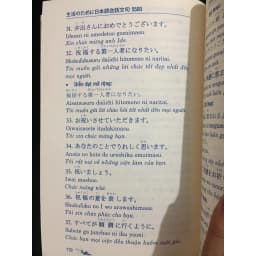 生活のために日本語会話文句 1500
31. 井出さんにおめでとうございます。
Ideisan ni omedetou gozaimasu.
Xin chúc mừng anh Ide.
32. 祝福する第一人者になりたい。
Shukufukusuru daiichi hitomono ni naritai.
Tôi muốn gửi những lời chúc tốt đẹp nhất đến mọi người.
Diễn đạt mở rộng:
する第一人者になりたい。
daiichi hitomono ni naritai.
Tôi muốn gửi lời chào tốt nhất đến mọi người.
33. お祝いさせていただきます。
Oiwaisasete itadakimasu.
Tôi xin chúc mừng.
34. あなたのことでうれしく思います。
Anata no koto de ureshiku omoimasu.
Tôi rất vui về những việc làm của bạn.
35. 祝いましょう。
Iwai mashou.
Chúc mừng nhé.
36. 祝福の意を表します。
Shukufuku no I wo arawashimasu.
Tôi xin chúc phúc cho bạn.
37. すべてが順調に行くように。
Subete ga junchou ni iku youni.
Chúc bạn mọi việc đều thuận buồm xuôi gió.